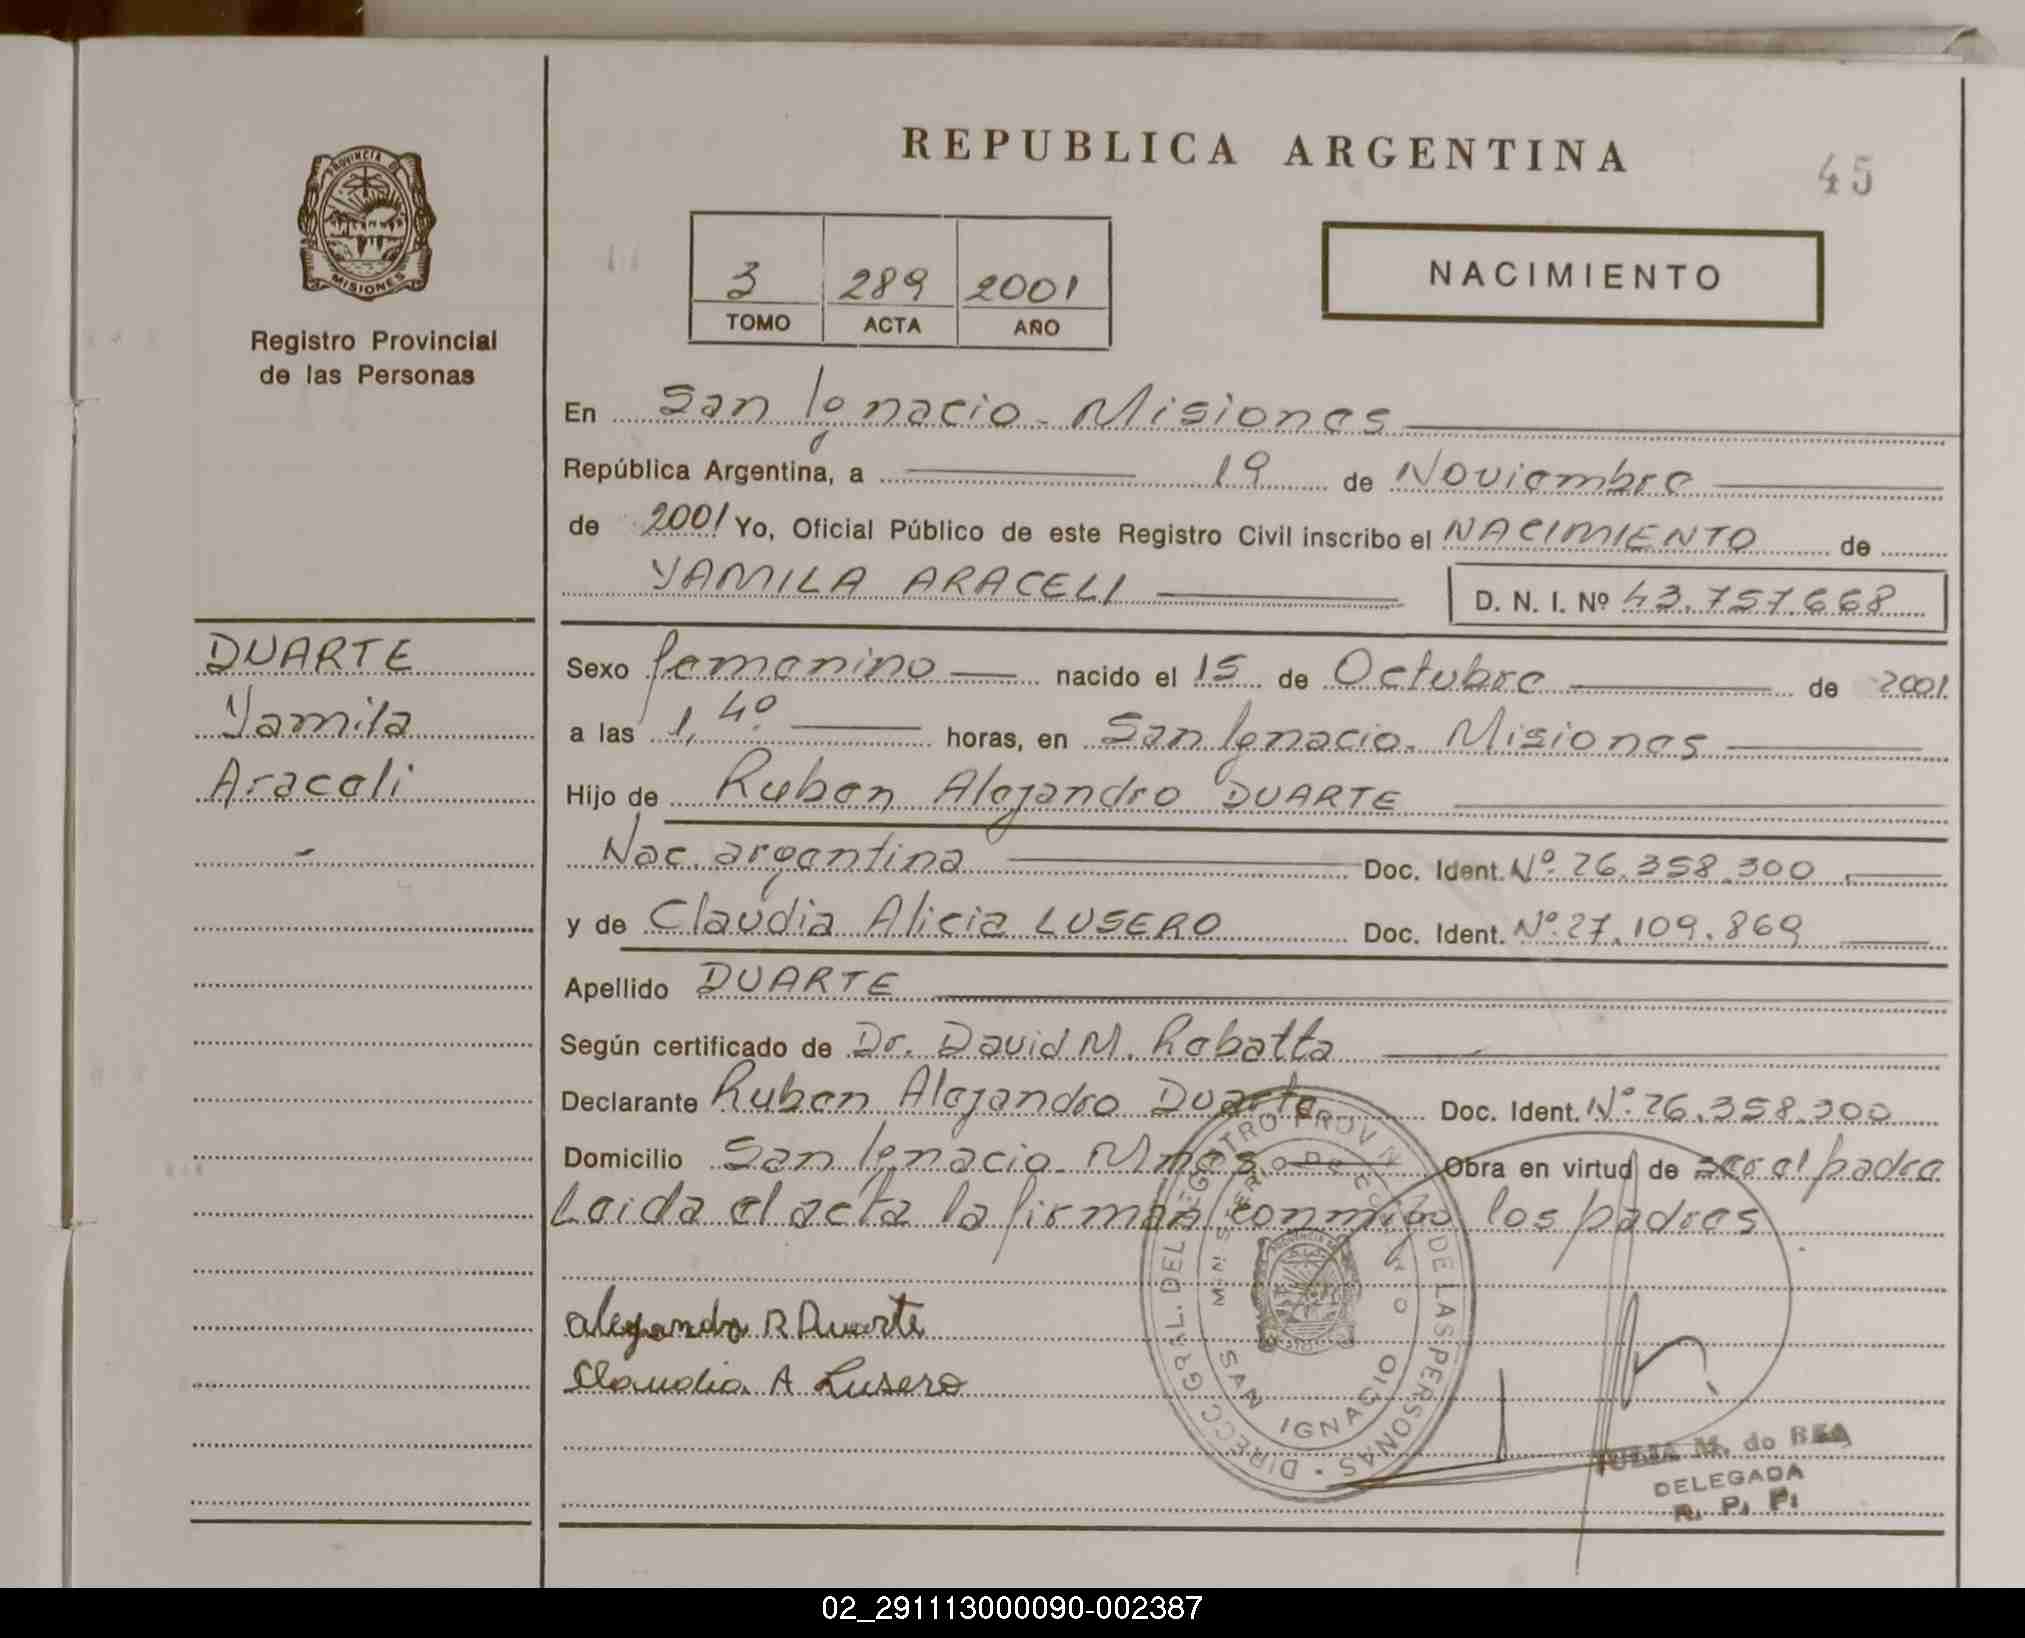 REPUBLICA ARGENTINA
45
PROVINCIA DE MISIONES
Registro Provincial
de las Personas
3 289 2001
TOMO ACTA AÑO
NACIMIENTO
En San Ignacio - Misiones
República Argentina, a 19 de Noviembre
de 2001 Yo, Oficial Público de este Registro Civil inscribo el NACIMIENTO de
YAMILA ARACELI D. N. I. Nº 43.757.668
DUARTE
Yamila
Araceli
Sexo femenino nacido el 15 de Octubre de 2001
a las 1,40 horas, en San Ignacio. Misiones
Hijo de Ruben Alejandro DUARTE
Nac. argentina Doc. Ident. Nº 26.358.300
y de Claudia Alicia LUSERO Doc. Ident. Nº 27.109.869
Apellido DUARTE
Según certificado de Dr. David M. Rabatta
Declarante Ruben Alejandro Duarte Doc. Ident. Nº 26.358.300
Domicilio San Ignacio - Mnes Obra en virtud de ser el padre
Leida el acta la firman conmigo los padres
Alejandro R Duarte
Claudia A Lusero
DIRECC GRAL. DEL REGISTRO PROVIN DE LAS PERSONAS
SAN IGNACIO
JULIA M. do REA
DELEGADA
R. P. P.
02_291113000090-002387